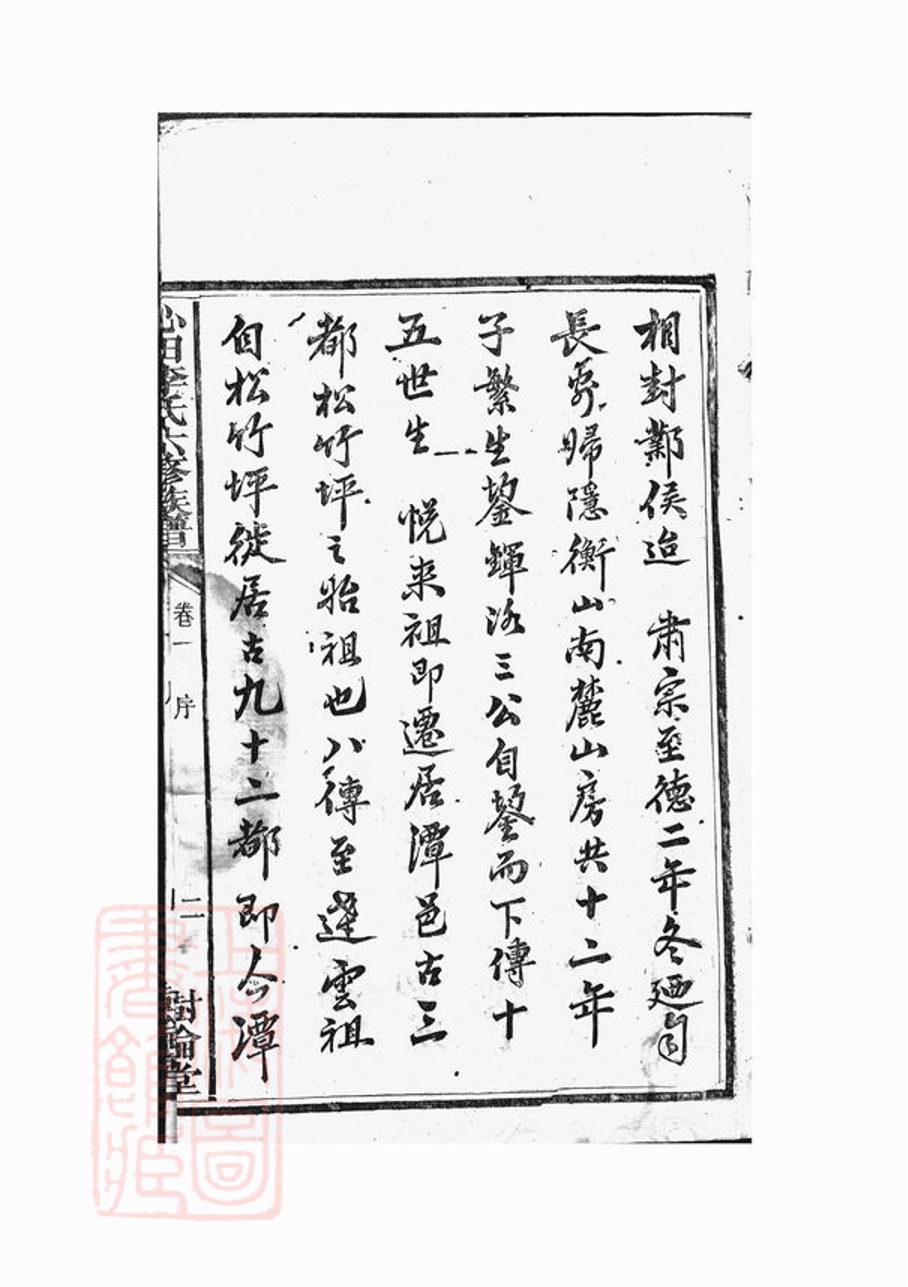 相封鄴侯迨　肅宗至德二年冬廼自
長安歸隱衡山南麓山房共十二年
子繁生鋆鏎泌三公自鋆而下傳十
五世生　悅来祖即遷居潭邑古三
都松竹坪之始祖也八傳至達雲祖
自松竹坪徙居古九十二都即今潭
心田李氏六修族譜
卷一
序
二